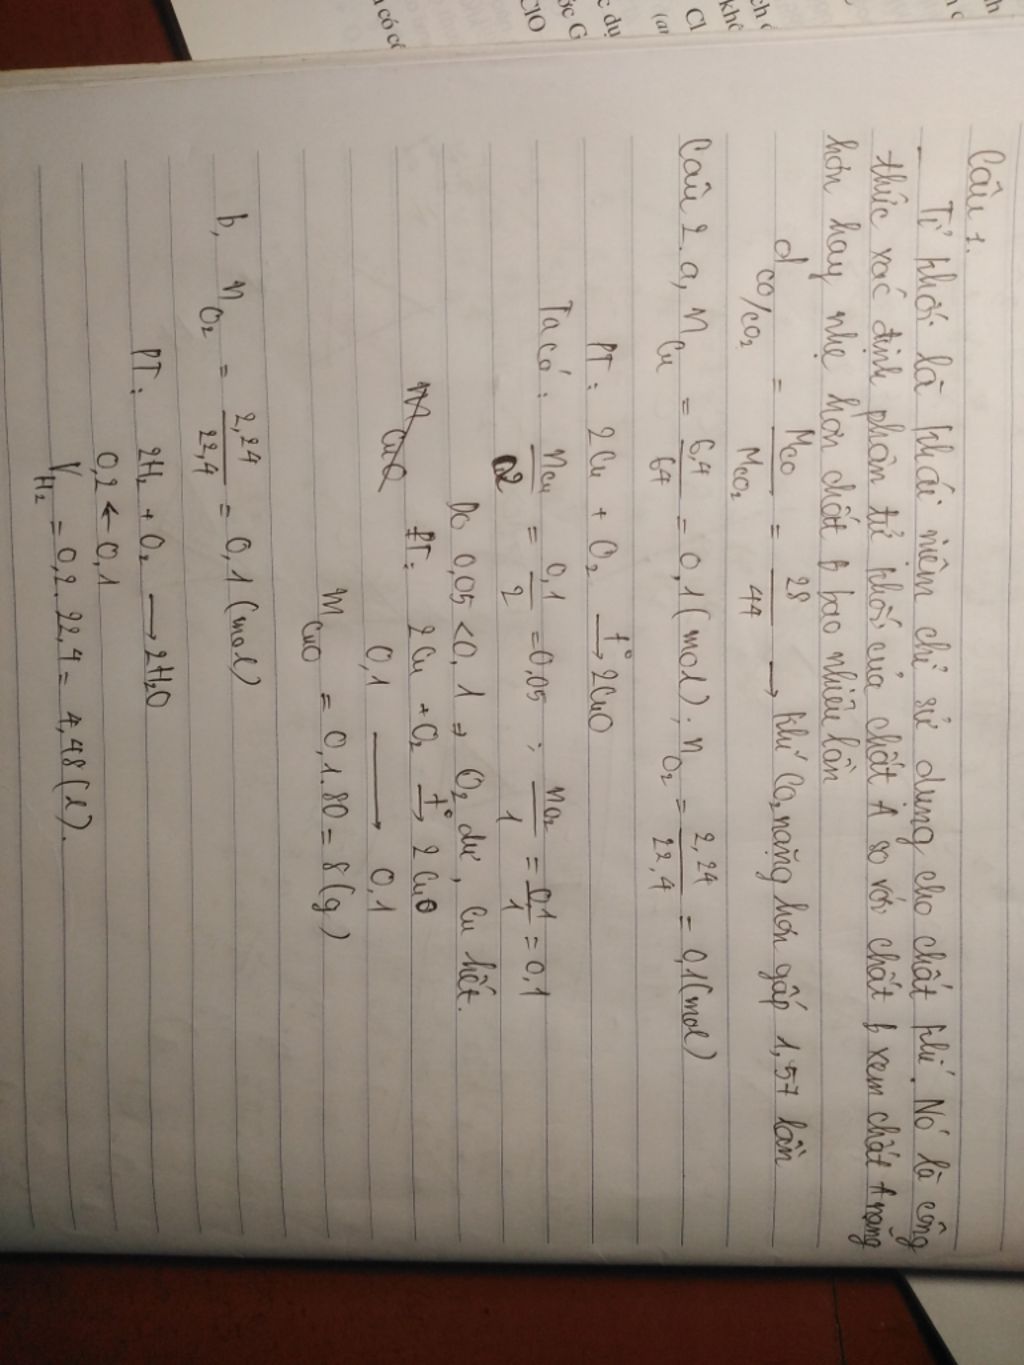 Câu 1.
- Tỉ khối là khái niệm chỉ sử dụng cho chất khí. Nó là công
thức xác định phân tử khối của chất A so với chất B xem chất A nặng
hơn hay nhẹ hơn chất B bao nhiêu lần
d CO/CO2 = MCO / MCO2 = 28 / 44 → khí CO2 nặng hơn gấp 1,57 lần
Câu 2. a, nCu = 6,4 / 64 = 0,1 (mol); nO2 = 2,24 / 22,4 = 0,1 (mol)
PT: 2Cu + O2 t°→ 2CuO
Ta có: nCu / 2 = 0,1 / 2 = 0,05 ; nO2 / 1 = 0,1 / 1 = 0,1
Do 0,05 < 0,1 ⇒ O2 dư, Cu hết.
mCuO PT: 2Cu + O2 t°→ 2CuO
0,1 → 0,1
mCuO = 0,1.80 = 8 (g)
b, nO2 = 2,24 / 22,4 = 0,1 (mol)
PT: 2H2 + O2 → 2H2O
0,2 ← 0,1
VH2 = 0,2. 22,4 = 4,48 (l).